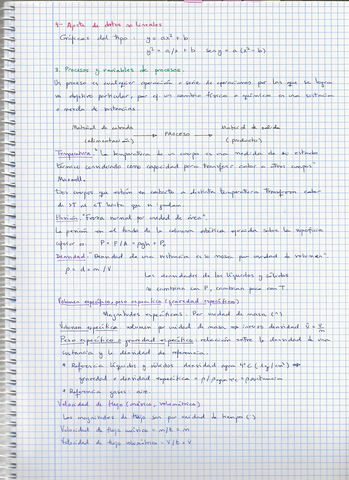 4- Ajuste de datos no lineales
Gráficas del tipo: y = ax² + b
y² = a/x + b   sen y = a (x² - b)
3. Procesos y variables de proceso
Un proceso es cualquier operación o serie de operaciones por las que se logra
un objetivo particular, por ej un cambio físico o químico en una sustancia
o mezcla de sustancias.
Material de entrada → PROCESO → Material de salida
(alimentación) (productos)
Temperatura: "La temperatura de un cuerpo es una medida de su estado
térmico considerado como capacidad para transferir calor a otros cuerpos"
Maxwell
Dos cuerpos que están en contacto a distinta temperatura transfieren calor
de >T al <T hasta que se igualan.
Presión: "Fuerza normal por unidad de área".
La presión en el fondo de la columna estática ejercida sobre la superficie
inferior es: P = F/A = ρgh + P₀
Densidad: "Densidad de una sustancia es la masa por unidad de volumen".
ρ = d = m/V
Las densidades de los líquidos y sólidos
no cambian con P, cambian poco con T.
Volumen específico, peso específico (gravedad específica)
Magnitudes específicas: Por unidad de masa (^)
Volumen específico: volumen por unidad de masa → inverso densidad
Peso específico o gravedad específica: relación entre la densidad de una
sustancia y la densidad de referencia.
* Referencia líquidos y sólidos densidad agua 4ºC (1g/cm³) ⇒
gravedad o densidad específica =
* Referencia gases aire.
Velocidad de flujo (másico, volumétrico)
Las magnitudes de flujo son por unidad de tiempo (·)
Velocidad de flujo másico = m/t = ṁ
Velocidad de flujo volumétrico = V/t = V̇